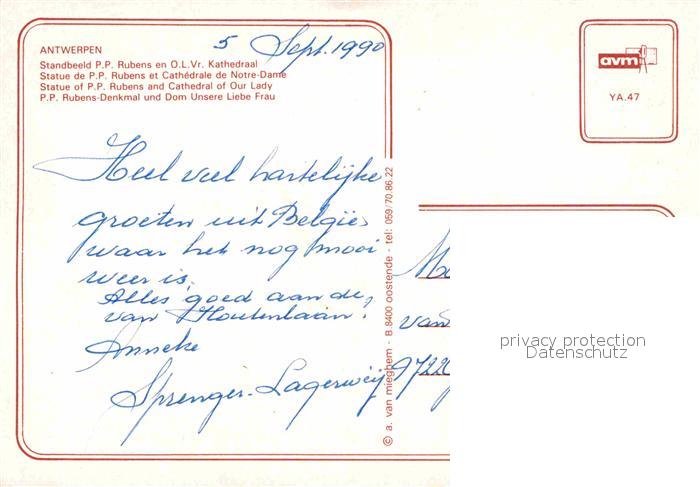 ANTWERPEN
Standbeeld P.P. Rubens en O.L.Vr. Kathedraal
Statue de P.P. Rubens et Cathédrale de Notre-Dame
Statue of P.P. Rubens and Cathedral of Our Lady
P.P. Rubens-Denkmal und Dom Unsere Liebe Frau
5 Sept. 1990
avm
YA.47
Heel veel hartelijke
groeten uit België
waar het nog mooi
weer is.
Alles goed aan de
van Houtenlaan?
Anneke
Sprenger-Lagerweij
© a. van mieghem - B.8400 oostende - tel: 059/70.86.22
van
9722
privacy protection
Datenschutz